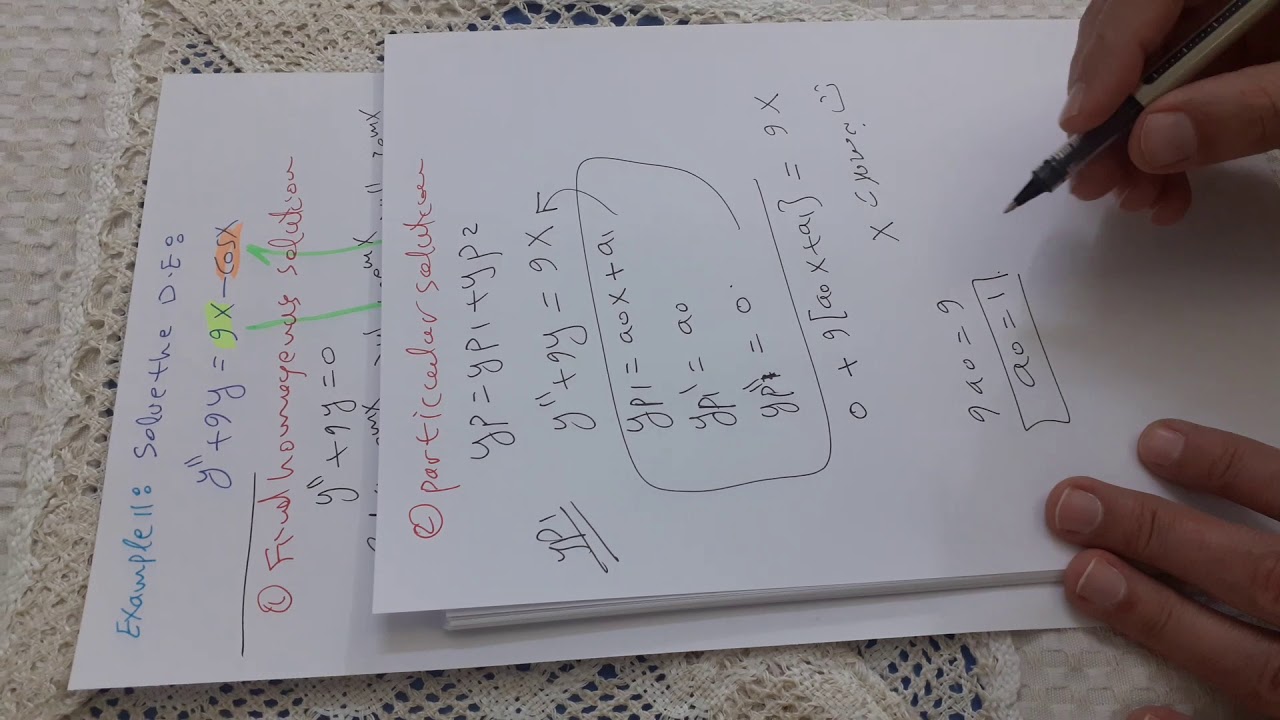 Example 11: Solve the D.E:
y'' + 9y = 9x - cosx
① Find homogenous solution
y'' + 9y = 0
② particular solution
yp = yp1 + yp2
yp1
y'' + 9y = 9x
yp1 = a0x + a1
yp1' = a0
yp1'' = 0
0 + 9[a0x + a1] = 9x
x
9a0 = 9
a0 = 1